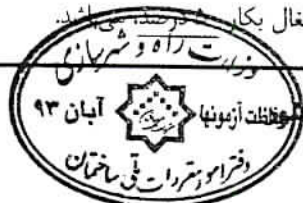 غال بکار ۵ درصد، می‌باشد.
وزارت راه و شهرسازی
حفاظت آزمونها
آبان ۹۳
دفتر امور مقررات ملی ساختمان